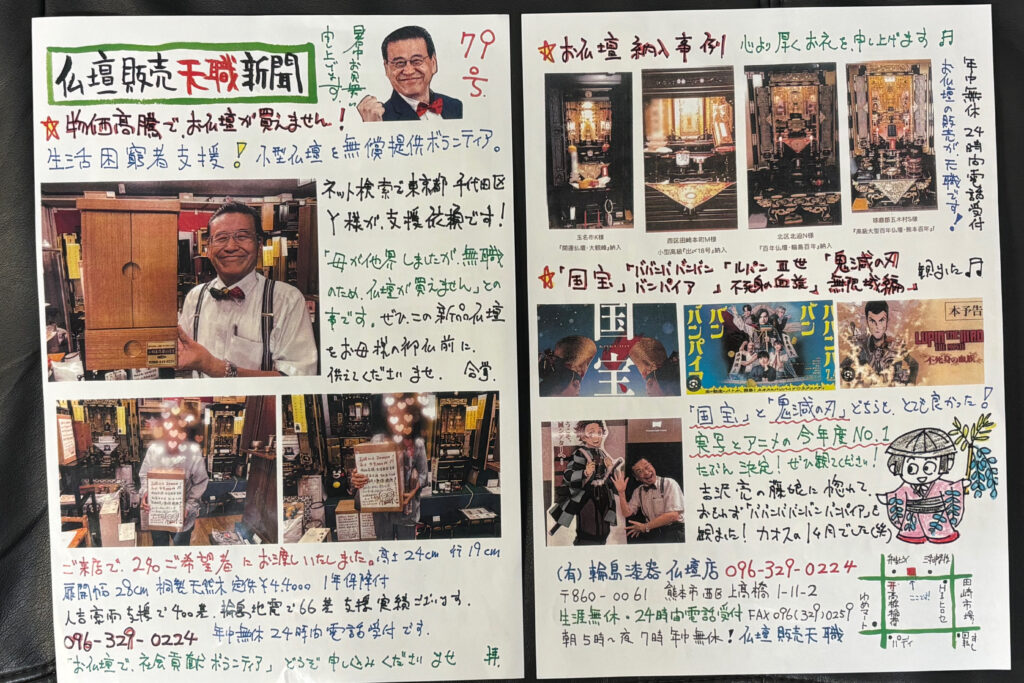 仏壇販売天職新聞
暑中お見舞い
申し上げます。
79
号
☆物価高騰でお仏壇が買えません!
生活困窮者支援!小型仏壇を無償提供ボランティア。
ネット検索で東京都千代田区
Y様が、支援依頼です!
「母が他界しましたが、無職
のため、仏壇が買えません」との
事です。ぜひ、この新品仏壇
をお母様の御仏前に、
供えてくださいませ、合掌
ご来店で、2名ご希望者にお渡しいたしました。高さ24cm 行19cm
扉開幅28cm 桐製天然木 定価¥44000 1年保障付
人吉豪雨支援で400基、輪島地震で66基 支援実績ございます。
096-329-0224 年中無休24時間電話受付です。
「お仏壇で、社会貢献ボランティア」どうぞ申し込みくださいませ 拝
☆お仏壇納入事例 心より厚くお礼を、申し上げます♬
年中無休24時間電話受付
お仏壇の販売が、天職です!
玉名市K様
『開運仏壇・大観峰』納入
西区田崎本町M様
小型高級『出〆18号』納入
北区北迫N様
『百年仏壇・輪島百年』納入
球磨郡五木村S様
『高級大型百年仏壇・熊本百年』
☆「国宝」「ババンババンバンバンパイア」「ルパンⅢ世不死身の血族」「鬼滅の刃無限城編」観ました♬
国宝
ババンババンバンバンパイア
本予告
LUPIN THE IIIRD
不死身の血族
「国宝」と「鬼滅の刃」どちらも、とても良かった!
実写とアニメの今年度NO.1
たぶん決定!ぜひ観てください!
吉沢亮の藤娘に惚れて、
おもわず「ババンババンバンバンパイア」も
観ました!カオスの1ヶ月でした(笑)
(有)輪島漆器仏壇店 096-329-0224
〒860-0061 熊本市西区上高橋1-11-2
生涯無休・24時間電話受付 FAX096(329)0259
朝5時〜夜7時年中無休!仏壇販売天職
ゆめマート
ここ
高橋稲荷
田崎市場